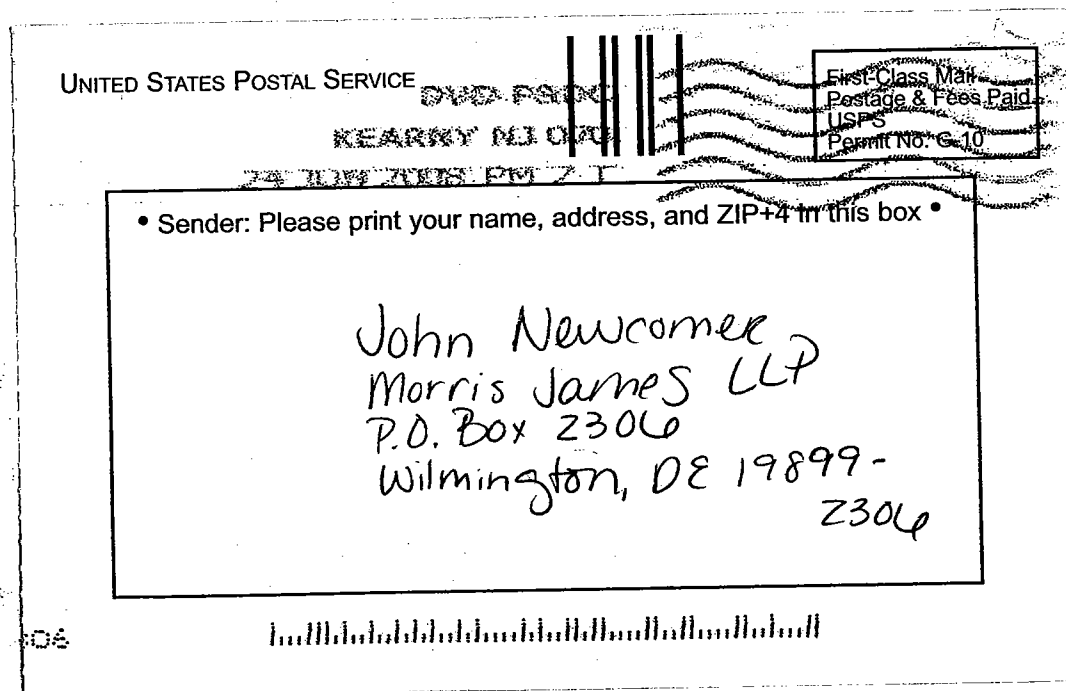 UNITED STATES POSTAL SERVICE
First-Class Mail
Postage & Fees Paid
USPS
Permit No. G-10
KEARNY NJ
• Sender: Please print your name, address, and ZIP+4 in this box •
John Newcomer
Morris James LLP
P.O. Box 2306
Wilmington, DE 19899-
2306